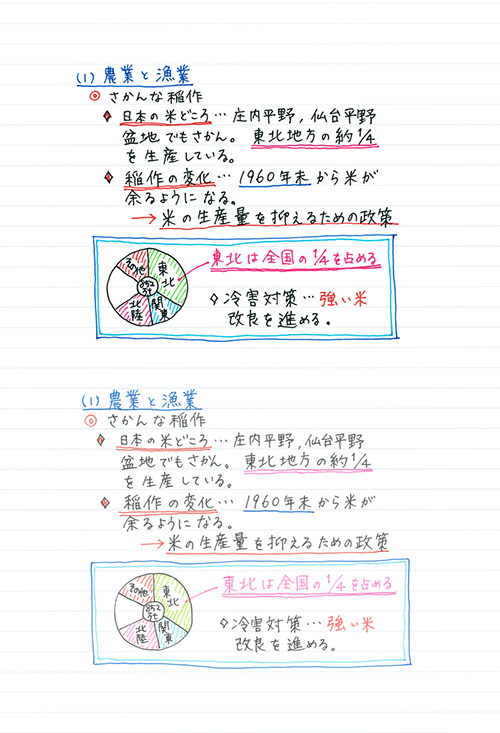 (1) 農業と漁業
◎ さかんな稲作
♦ 日本の米どころ… 庄内平野, 仙台平野
盆地でもさかん。 東北地方の約1/4
を生産している。
♦ 稲作の変化… 1960年末から米が
余るようになる。
→ 米の生産量を抑えるための政策
その他
東北
852万t
北陸
関東
東北は全国の1/4を占める
◇冷害対策…強い米
改良を進める。
(1) 農業と漁業
◎ さかんな稲作
♦ 日本の米どころ… 庄内平野, 仙台平野
盆地でもさかん。 東北地方の約1/4
を生産している。
♦ 稲作の変化… 1960年末から米が
余るようになる。
→ 米の生産量を抑えるための政策
その他
東北
852万t
北陸
関東
東北は全国の1/4を占める
◇冷害対策…強い米
改良を進める。